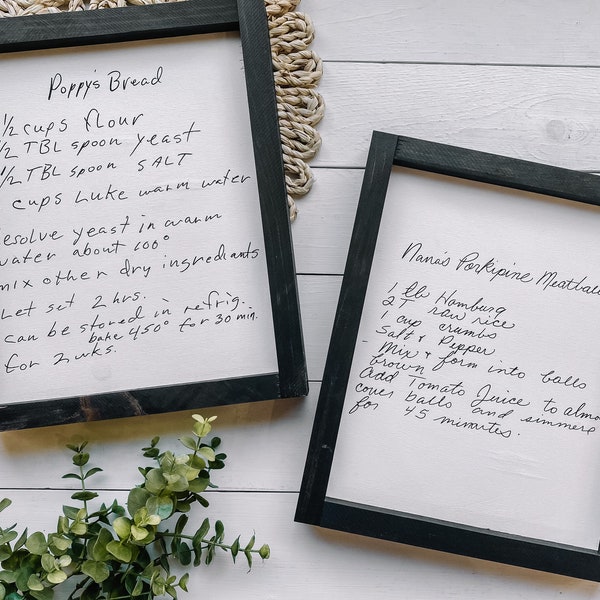 Poppy's Bread
1/2 cups flour
1/2 TBL spoon yeast
1/2 TBL spoon SALT
cups Luke warm water
esolve yeast in warm
water about 100°
mix other dry ingrediants
Let set 2 hrs.
can be stored in refrig.
bake 450° for 30 min.
for 2 wks.
Nana's Porkipine Meatballs
1 lb Hamburg
2 T raw rice
1 cup crumbs
Salt & Pepper
- Mix & form into balls
brown
Add Tomato Juice to almo
cover balls and simmer
for 45 minutes.